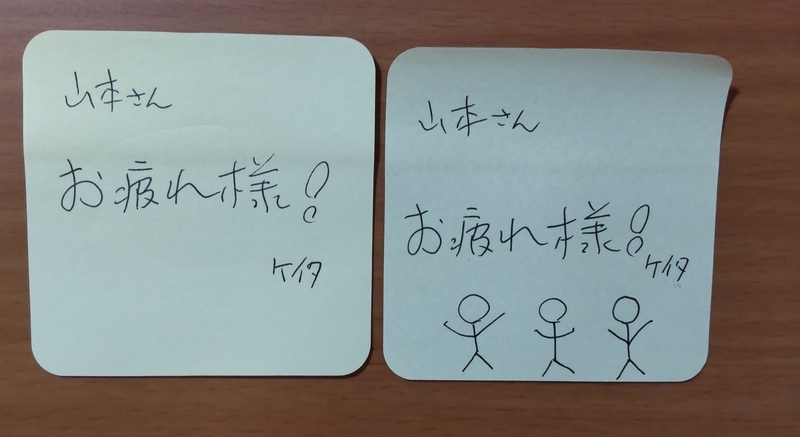 山本さん
お疲れ様!
ケイタ
山本さん
お疲れ様!
ケイタ